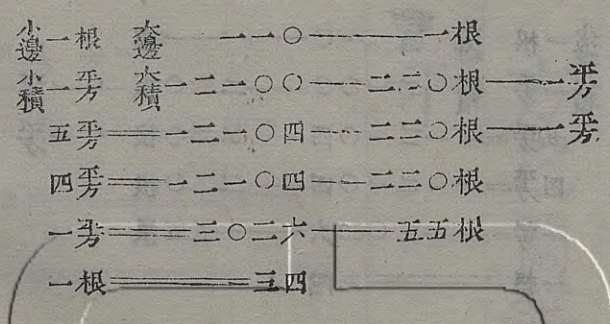 小邊一根 大邊一一〇——一根
小積一平方 大積一二一〇〇——二二〇根——一平方
五平方==一二一〇四——二二〇根——一平方
四平方==一二一〇四——二二〇根
一平方==三〇二六——五五根
一根==三四